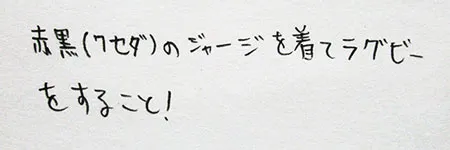 赤黒(ワセダ)のジャージを着てラグビー
をすること!